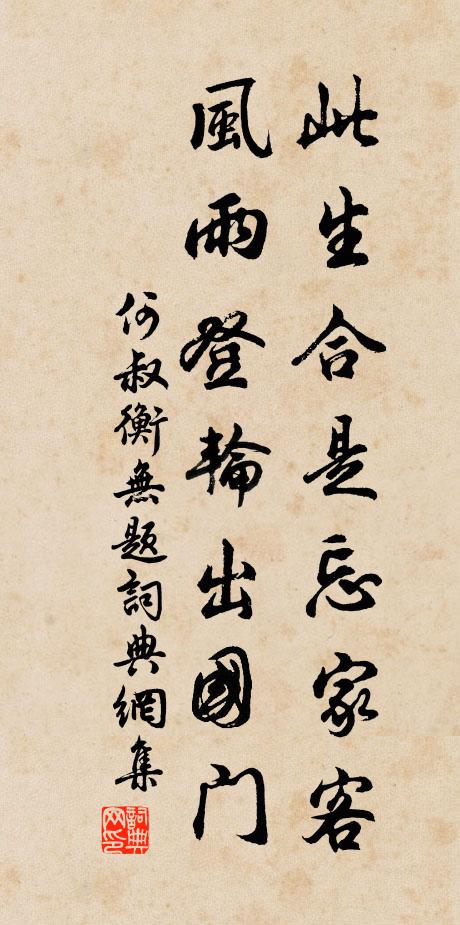 此生合是忘家客
風雨登輪出國門
何叔衡無題詞典網集
詞典
网印